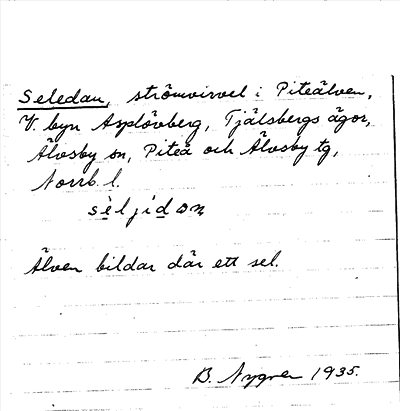 Seledan, strömvirvel i Piteälven,
V. byn Asplövberg, Tjälsbergs ägor,
Älvsby sn, Piteå och Älvsby tg,
Norrb. l.
Älven bildar där ett sel.
B. Nygren 1935.